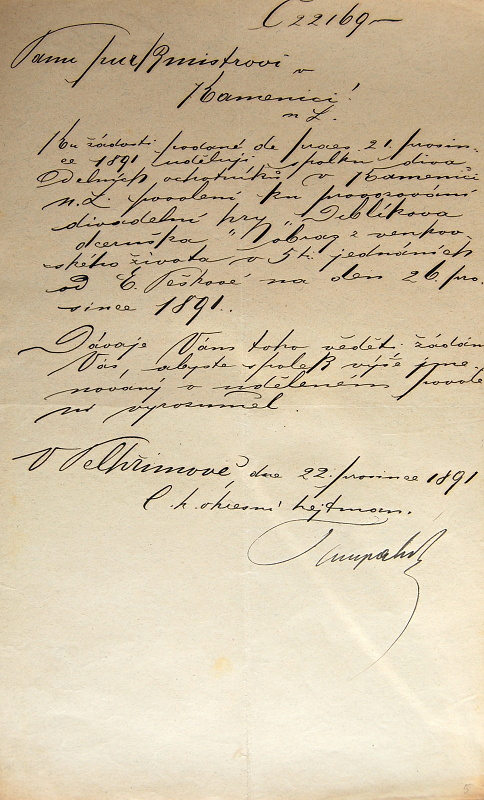 C 22169
Panu purkmistrovi
v
Kamenici
n L.
Ku žádosti podané de praes. 21. prosin-
ce 1891 uděluji spolku diva
delních ochotníků v Kamenici
n. L. povolení ku provozování
divadelní hry „Deblíkova
dceruška" „obraz z venkov-
ského života v 5ti jednáních
od E. Peškové na den 26. pro-
since 1891.
Dávaje Vám toho vědět žádám
Vás, abyste spolek výše jme-
novaný o uděleném povole
ní vyrozuměl.
V Pelhřimově dne 22. prosince 1891
C. k. okresní hejtman.
5